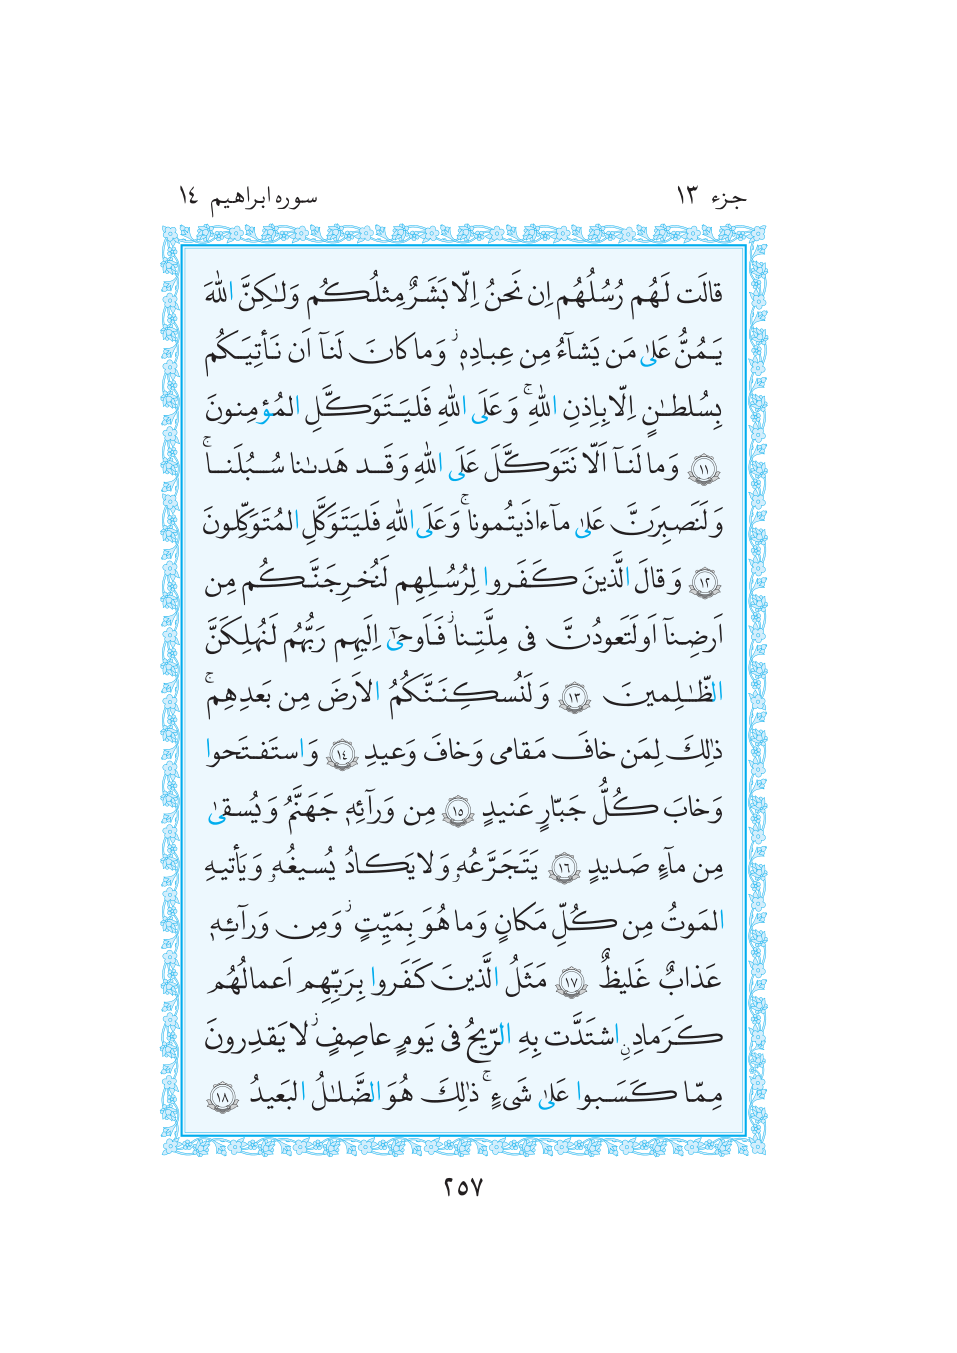 جزء ١٣
سوره ابراهیم ١٤
قالَت لَهُم رُسُلُهُم اِن نَحنُ اِلّا بَشَرٌ مِثلُكُم وَلـٰكِنَّ اللهَ
يَمُنُّ عَلىٰ مَن يَشآءُ مِن عِبادِهٖ ۖ وَما كانَ لَنآ اَن نَأتِيَكُم
بِسُلطـٰنٍ اِلّا بِاِذنِ اللهِ ۚ وَعَلَى اللهِ فَليَتَوَكَّلِ المُؤمِنونَ
﴿١١﴾ وَما لَنآ اَلّا نَتَوَكَّلَ عَلَى اللهِ وَقَد هَدىٰنا سُبُلَنا ۚ
وَلَنَصبِرَنَّ عَلىٰ مآ ءاذَيتُمونا ۚ وَعَلَى اللهِ فَليَتَوَكَّلِ المُتَوَكِّلونَ
﴿١٢﴾ وَقالَ الَّذينَ كَفَروا لِرُسُلِهِم لَنُخرِجَنَّكُم مِن
اَرضِنآ اَو لَتَعودُنَّ فى مِلَّتِنا ۖ فَاَوحىٰٓ اِلَيهِم رَبُّهُم لَنُهلِكَنَّ
الظّـٰلِمينَ ﴿١٣﴾ وَلَنُسكِنَنَّكُمُ الاَرضَ مِن بَعدِهِم ۚ
ذٰلِكَ لِمَن خافَ مَقامى وَخافَ وَعيدِ ﴿١٤﴾ وَاستَفتَحوا
وَخابَ كُلُّ جَبّارٍ عَنيدٍ ﴿١٥﴾ مِن وَرآئِهٖ جَهَنَّمُ وَيُسقىٰ
مِن مآءٍ صَديدٍ ﴿١٦﴾ يَتَجَرَّعُهٗ وَلا يَكادُ يُسيغُهٗ وَيَأتيهِ
المَوتُ مِن كُلِّ مَكانٍ وَما هُوَ بِمَيِّتٍ ۖ وَمِن وَرآئِهٖ
عَذابٌ غَليظٌ ﴿١٧﴾ مَثَلُ الَّذينَ كَفَروا بِرَبِّهِم اَعمالُهُم
كَرَمادٍ اشتَدَّت بِهِ الرّيحُ فى يَومٍ عاصِفٍ ۖ لا يَقدِرونَ
مِمّا كَسَبوا عَلىٰ شَىءٍ ۚ ذٰلِكَ هُوَ الضَّلـٰلُ البَعيدُ ﴿١٨﴾
٢٥٧